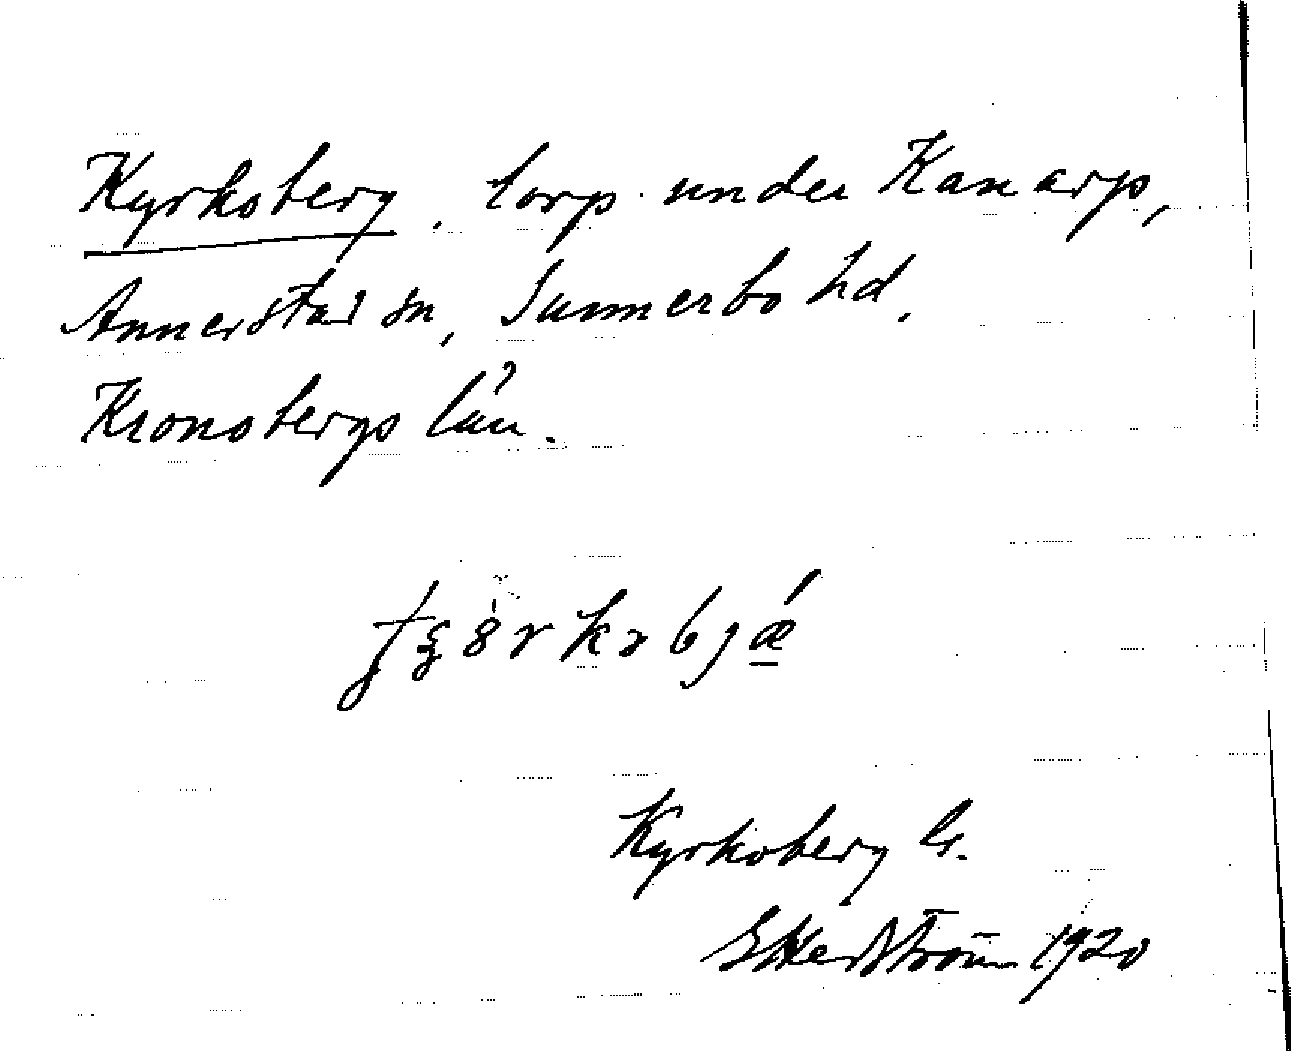 Kyrksberg, torp under Kanarp,
Annerstad sn, Sunnerbo hd.
Kronobergs län.
Kyrksberg
1920